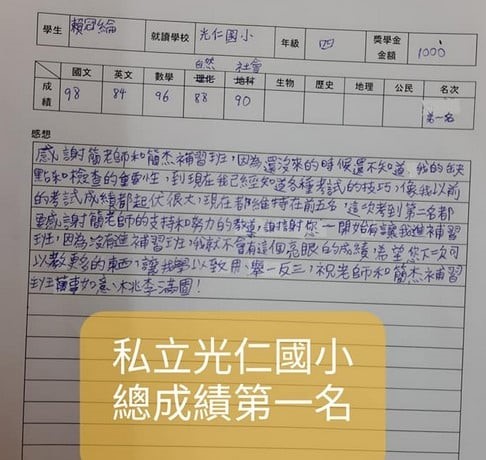 學生 賴冠綸 就讀學校 光仁國小 年級 四 獎學金金額 1000
自然 社會
成績 國文 英文 數學 理化 地科 生物 歷史 地理 公民 名次
98 84 96 88 90 第一名
感想
感謝簡老師和簡杰補習班,因為還沒來的時候還不知道我的缺
點和檢查的重要性,到現在我已經知道各種考試的技巧,像我以前
的考試成績都起伏很大,現在都維持在前五名,這次考到第一名都
要感謝簡老師的支持和努力的教導,謝謝您一開始有讓我進補習
班,因為沒有進補習班,我就不會有這個亮眼的成績,希望您下次可
以教更多的東西,讓我學以致用、舉一反三,祝老師和簡杰補習
班萬事如意、桃李滿園!
私立光仁國小
總成績第一名